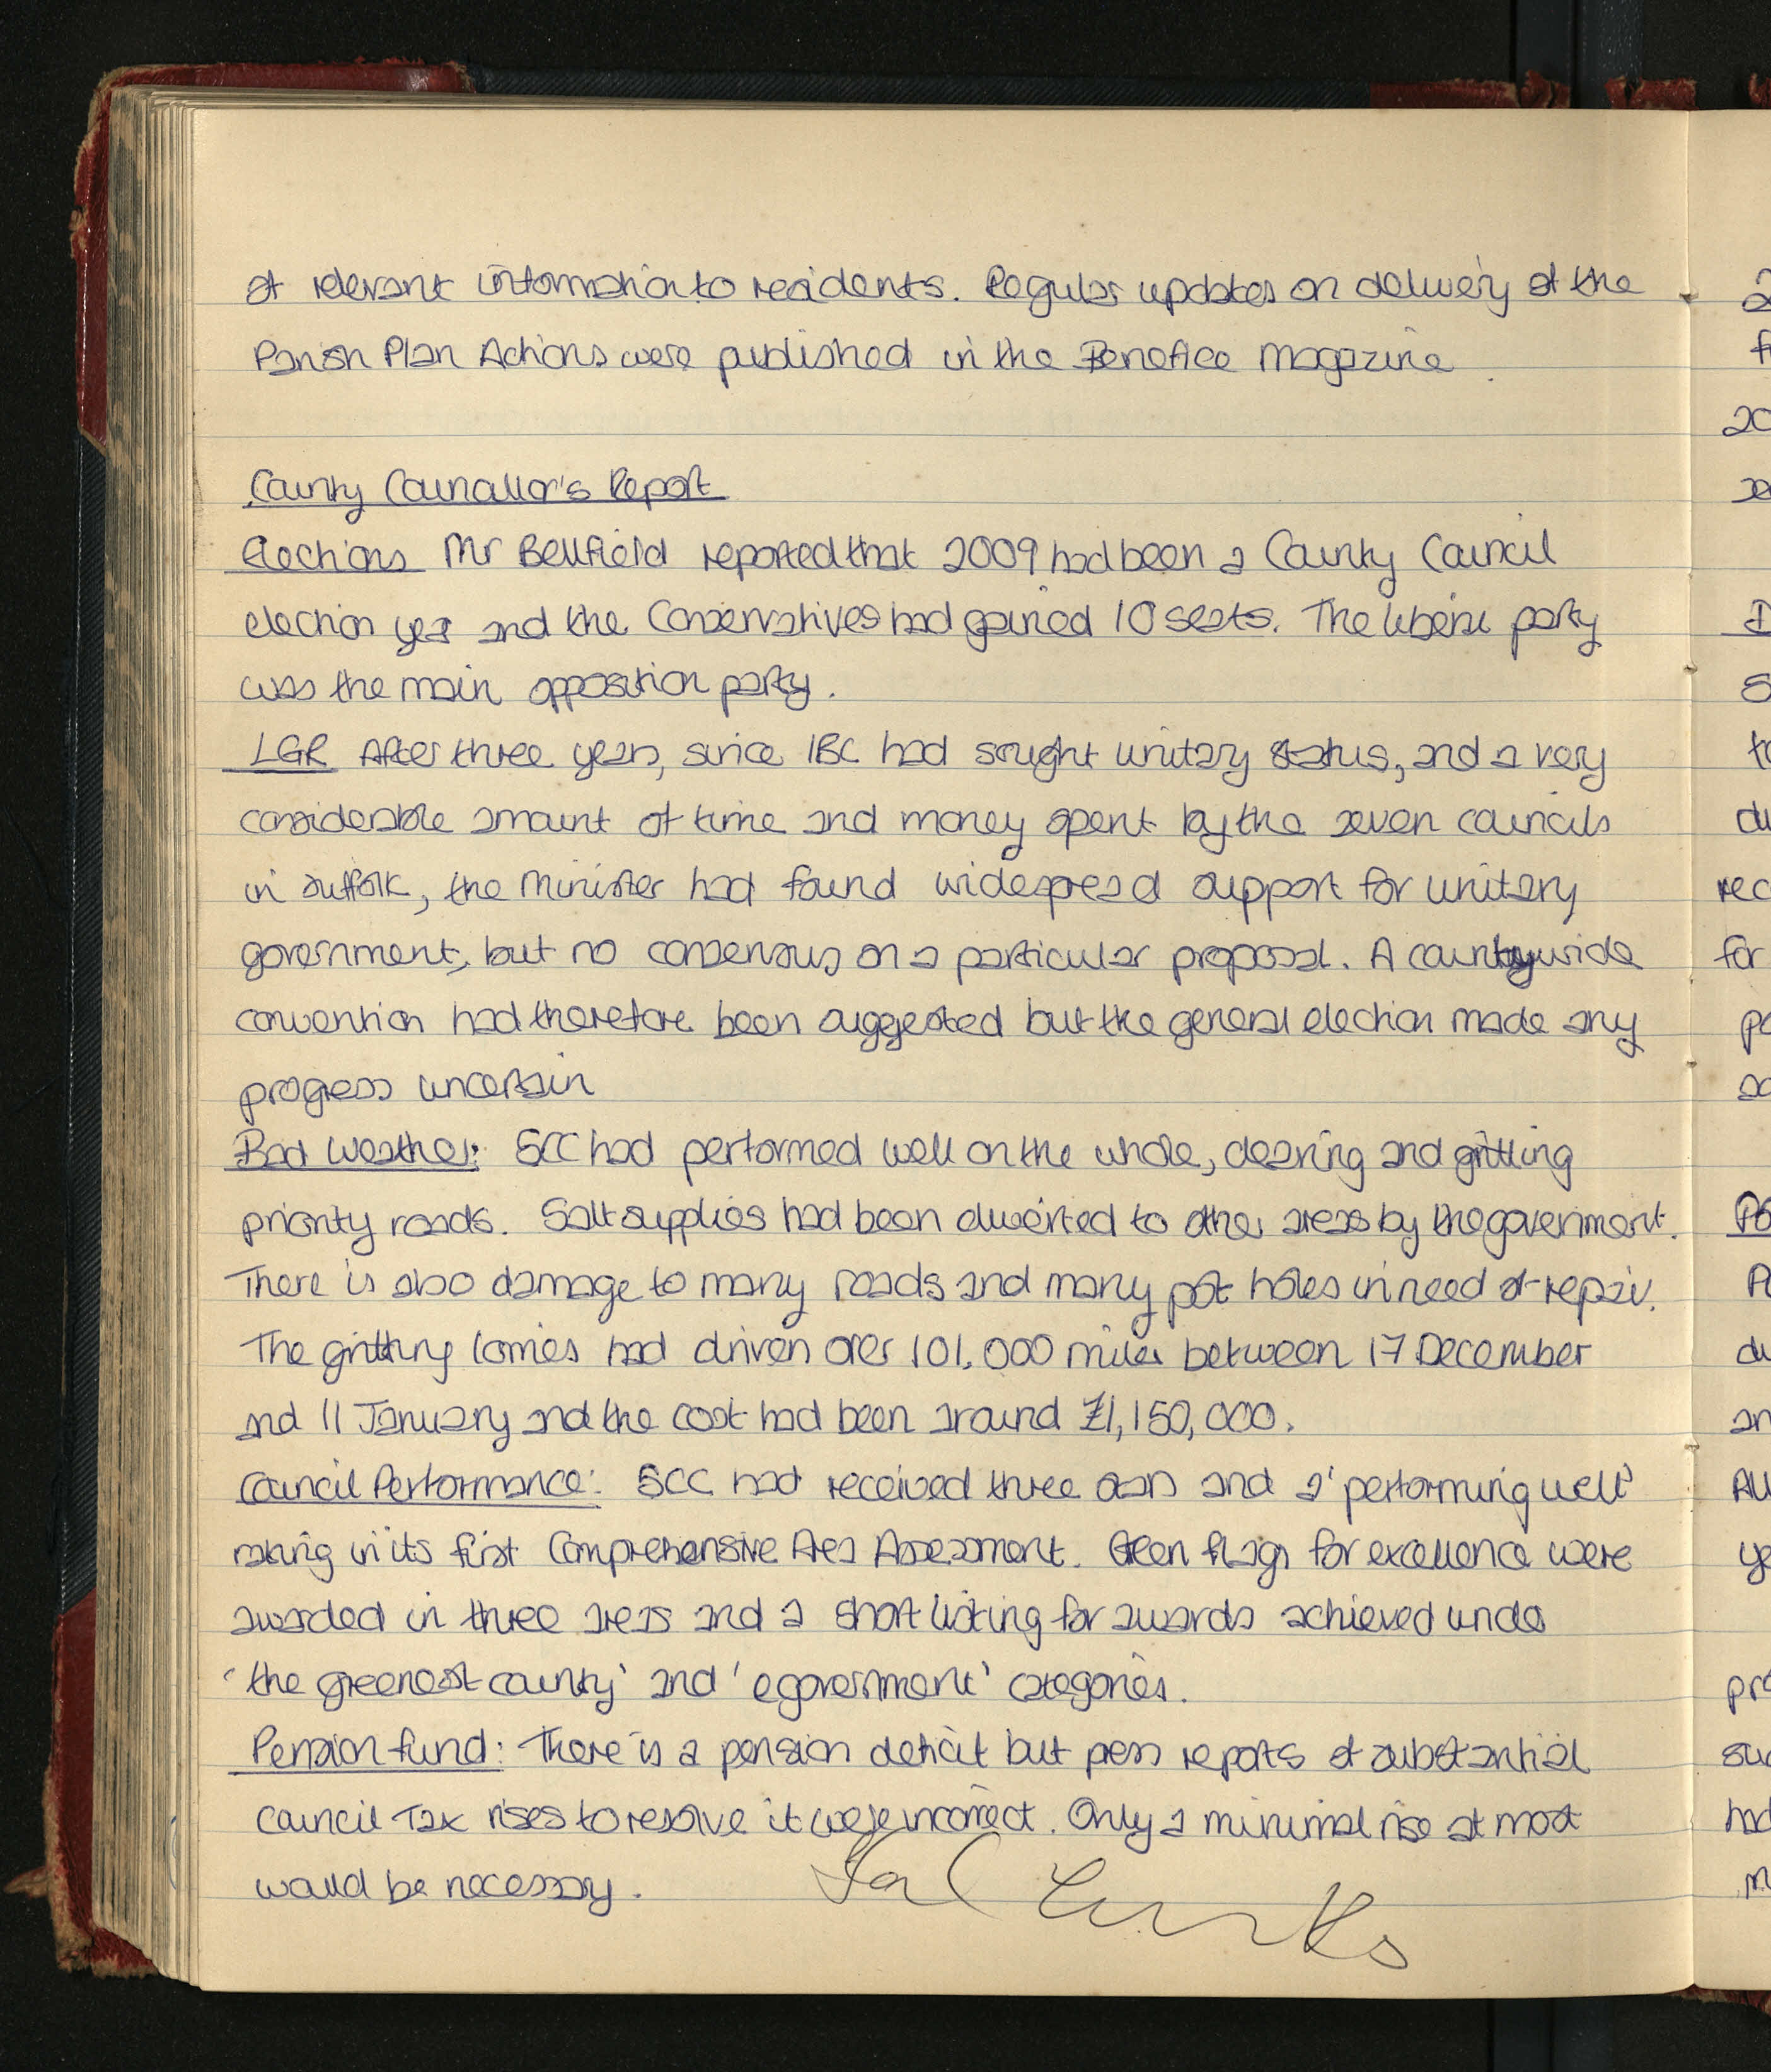 of relevant information to residents. Regular updates on delivery of the
Parish Plan Actions were published in the Benefice Magazine.
County Councillor's Report
Elections Mr Bellfield reported that 2009 had been a County Council
election year and the Conservatives had gained 10 seats. The liberal party
was the main opposition party.
LGR After three years, since IBC had sought unitary status, and a very
considerable amount of time and money spent by the seven councils
in Suffolk, the Minister had found widespread support for unitary
government, but no consensus on a particular proposal. A countywide
convention had therefore been suggested but the general election made any
progress uncertain
Bad Weather: SCC had performed well on the whole, clearing and gritting
priority roads. Salt supplies had been diverted to other areas by the government.
There is also damage to many roads and many pot holes in need of repair.
The gritting lorries had driven over 101,000 miles between 17 December
and 11 January and the cost had been around £1,150,000.
Council Performance: SCC had received three stars and a 'performing well'
rating in its first Comprehensive Area Assessment. Green flags for excellence were
awarded in three areas and a short listing for awards achieved under
'the greenest county' and 'egovernment' categories.
Pension fund: There is a pension deficit but press reports of substantial
Council Tax rises to resolve it were incorrect. Only a minimal rise at most
would be necessary.